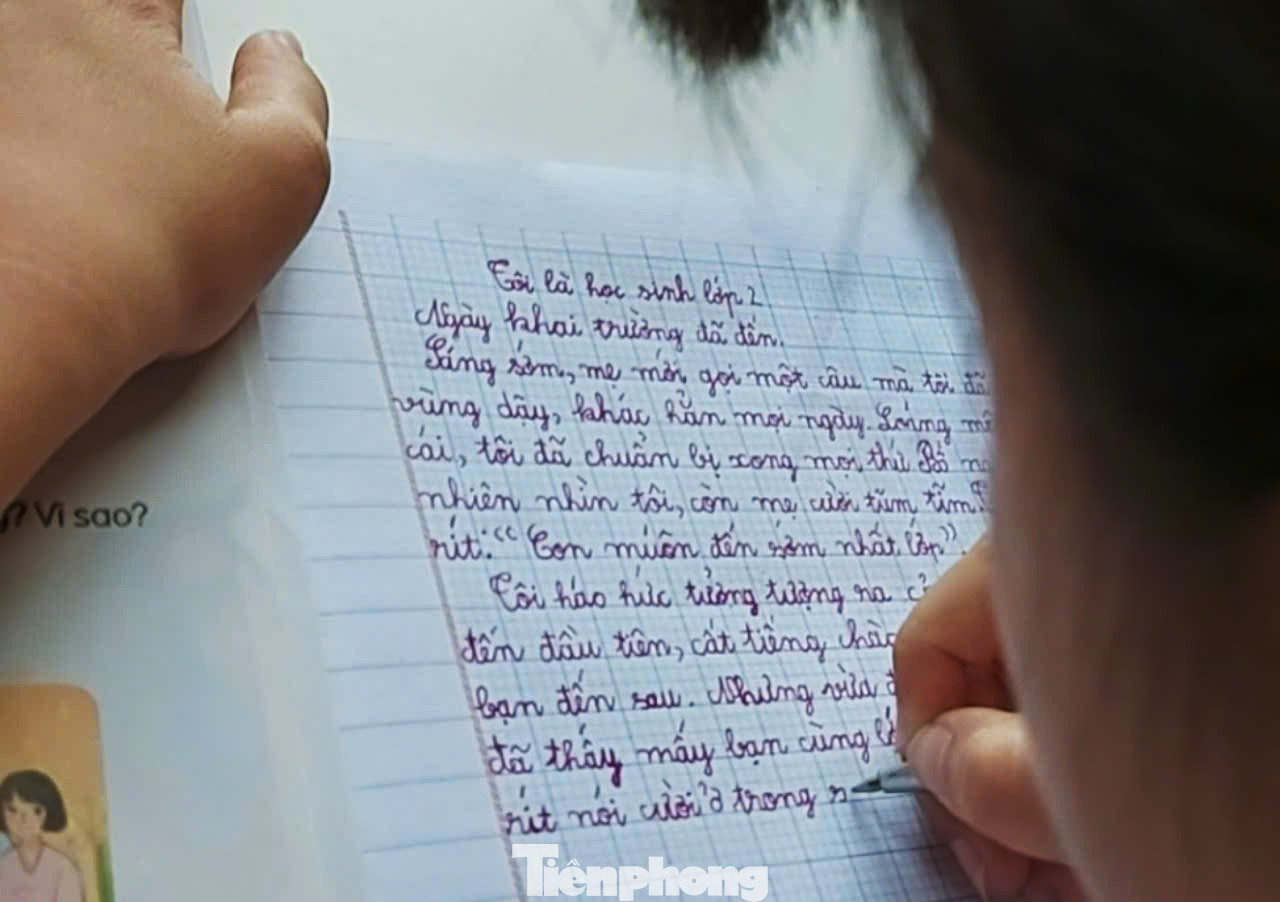 Tôi là học sinh lớp 2
Ngày khai trường đã đến.
Sáng sớm, mẹ mới gọi một câu mà tôi đã
vùng dậy, khác hẳn mọi ngày. Loáng mộ
cái, tôi đã chuẩn bị xong mọi thứ. Bố ng
nhiên nhìn tôi, còn mẹ cười tủm tỉm.
rít: “Con muốn đến sớm nhất lớp”.
Tôi háo hức tưởng tượng ra cả
đến đầu tiên, cất tiếng chào
bạn đến sau. Nhưng vừa đ
đã thấy mấy bạn cùng lớ
rít nói cười ở trong s
? Vì sao?
Tiênphong